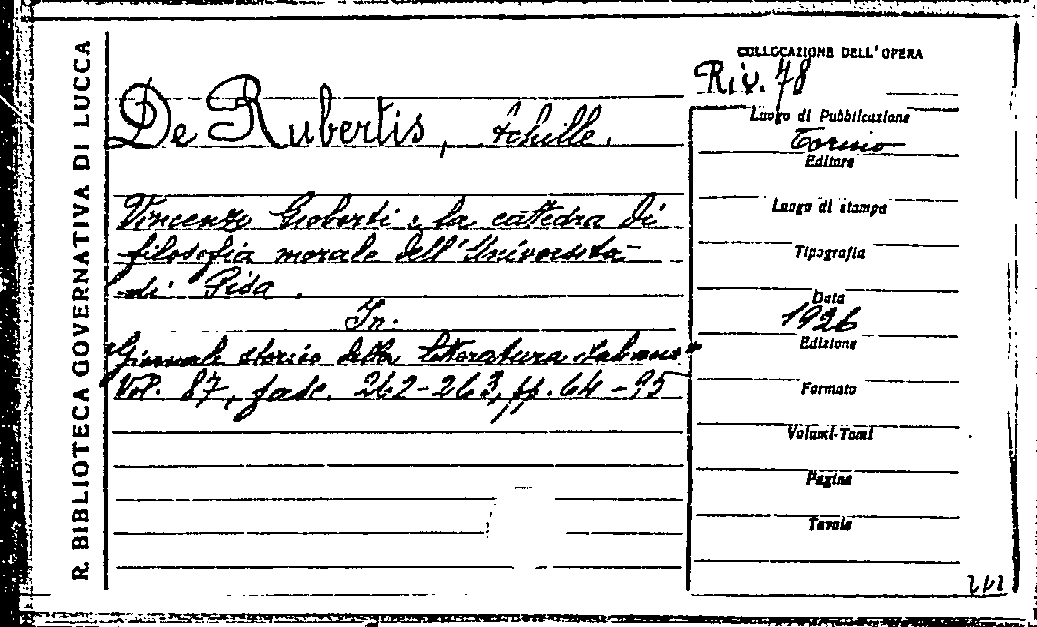 R. BIBLIOTECA GOVERNATIVA DI LUCCA
De Rubertis, Achille.
Vincenzo Gioberti e la cattedra di
filosofia morale dell'Università
di Pisa.
In:
"Giornale storico della letteratura italiana"
Vol. 87, fasc. 262-263, pp. 64-95
COLLOCAZIONE DELL'OPERA
Riv. 78
Luogo di Pubblicazione
Torino
Editore
Luogo di stampa
Tipografia
Data
1926
Edizione
Formato
Volumi-Tomi
Pagine
Tavole